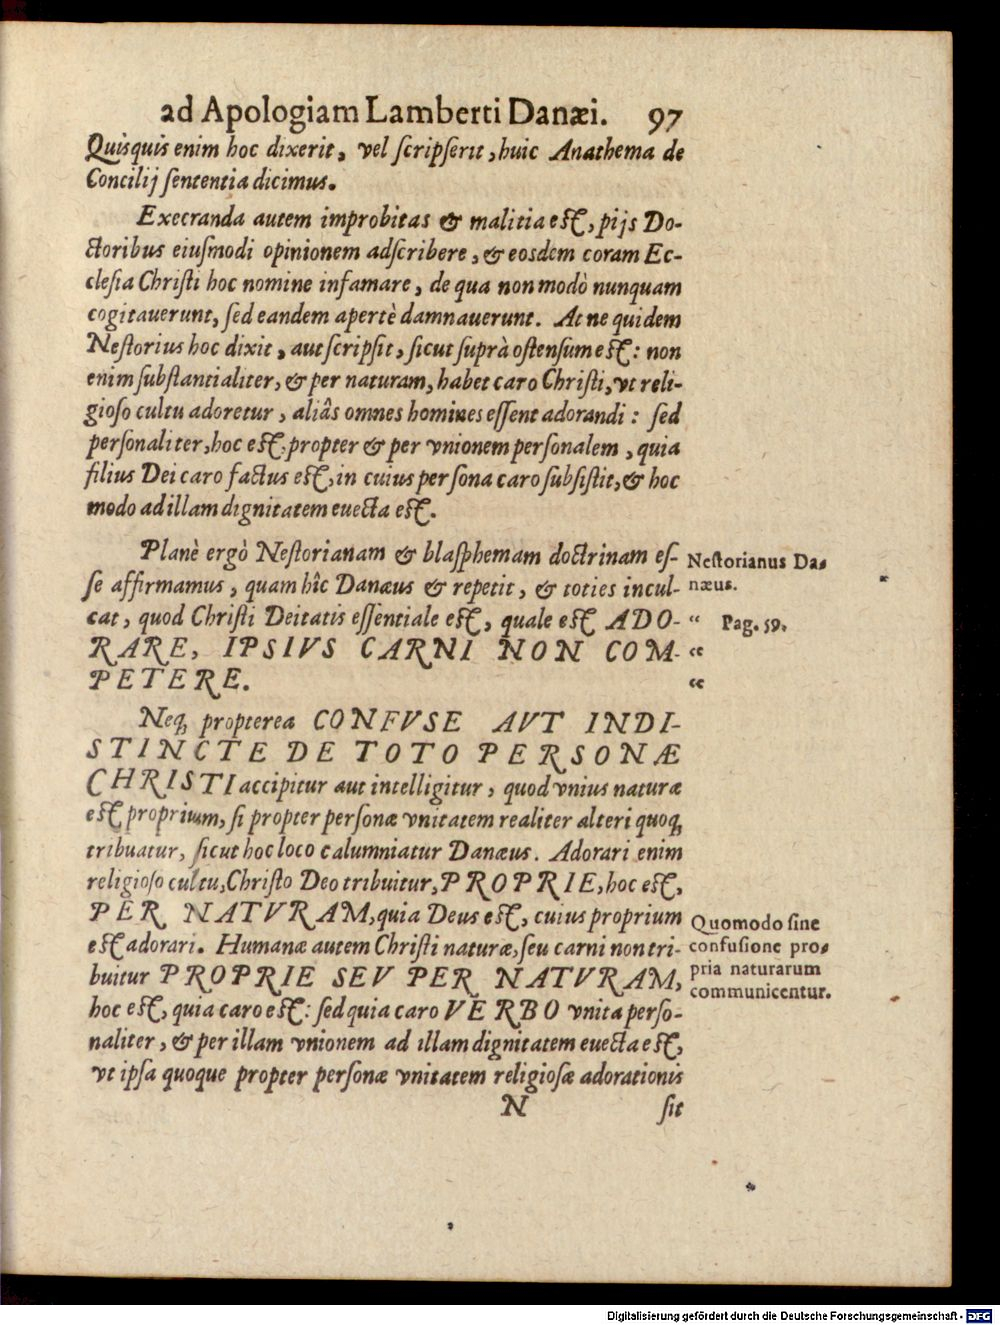 ad Apologiam Lamberti Danæi. 97
Quisquis enim hoc dixerit, vel ſcripſerit, huic Anathema de
Concilij ſententia dicimus.
Execranda autem improbitas & malitia eſt, pijs Do-
ctoribus eiuſmodi opinionem adſcribere, & eosdem coram Ec-
cleſia Chriſti hoc nomine infamare, de qua non modò nunquam
cogitauerunt, ſed eandem apertè damnauerunt. At ne quidem
Neſtorius hoc dixit, aut ſcripſit, ſicut ſuprà oſtenſum eſt: non
enim ſubſtantialiter, & per naturam, habet caro Chriſti, vt reli-
gioſo cultu adoretur, aliâs omnes homines eſſent adorandi: ſed
perſonaliter, hoc eſt, propter & per vnionem perſonalem, quia
filius Dei caro factus eſt, in cuius perſona caro ſubſiſtit, & hoc
modo ad illam dignitatem euecta eſt.
Planè ergò Neſtorianam & blaſphemam doctrinam eſ-
ſe affirmamus, quam hîc Danæus & repetit, & toties incul-
cat, quod Chriſti Deitatis eſſentiale eſt, quale eſt ADO-
RARE, IPSIVS CARNI NON COM-
PETERE.
Nestorianus Da-
næus.
“ Pag. 59.
“
“
Neq; propterea CONFVSE AVT INDI-
STINCTE DE TOTO PERSONÆ
CHRISTI accipitur aut intelligitur, quod vnius naturæ
eſt proprium, ſi propter perſonæ vnitatem realiter alteri quoq;
tribuatur, ſicut hoc loco calumniatur Danæus. Adorari enim
religioſo cultu, Chriſto Deo tribuitur, PROPRIE, hoc eſt,
PER NATVRAM, quia Deus eſt, cuius proprium
eſt adorari. Humanæ autem Chriſti naturæ, ſeu carni non tri-
buitur PROPRIE SEV PER NATVRAM,
hoc eſt, quia caro eſt: ſed quia caro VERBO vnita perſo-
naliter, & per illam vnionem ad illam dignitatem euecta eſt,
vt ipſa quoque propter perſonæ vnitatem religioſæ adorationis
Quomodo ſine
confuſione pro-
pria naturarum
communicentur.
N ſit
Digitalisierung gefördert durch die Deutsche Forschungsgemeinschaft - DFG